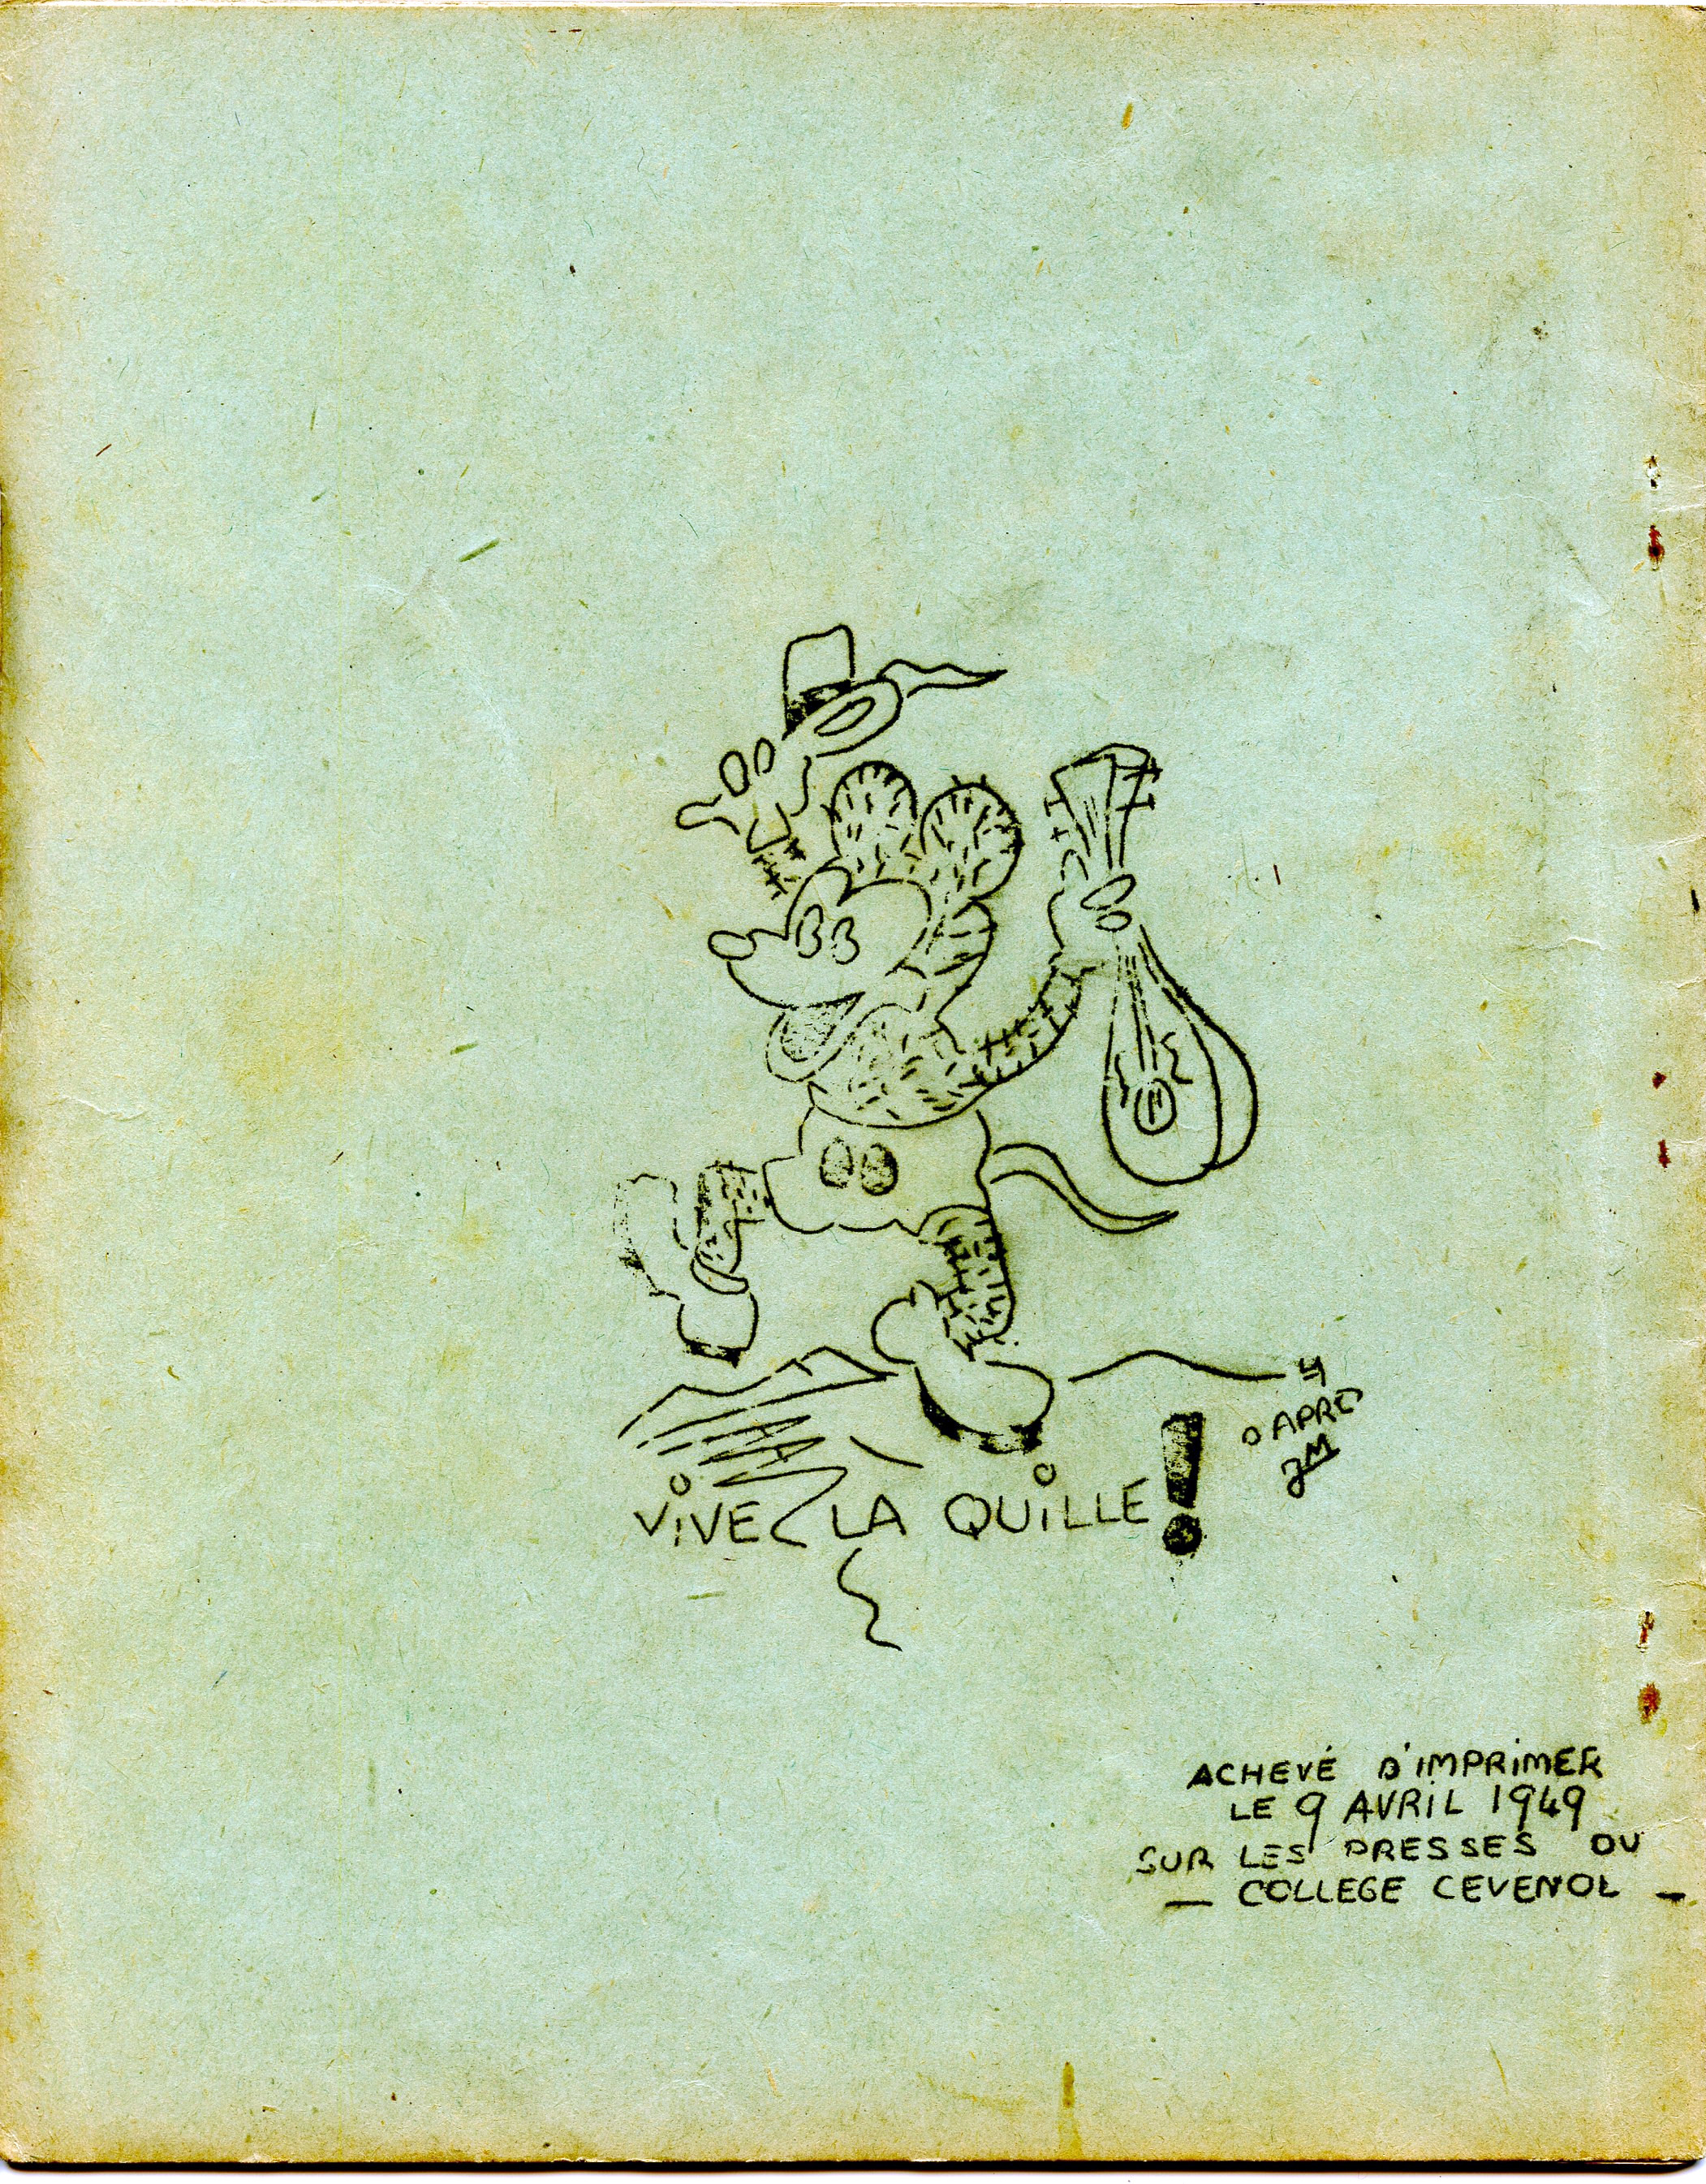 ViVE LA QUiLLE!
D APRE
JM
ACHEVÉ D'IMPRiMER
LE 9 AVRiL 1949
SUR LES PRESSES DU
— COLLEGE CEVENOL —